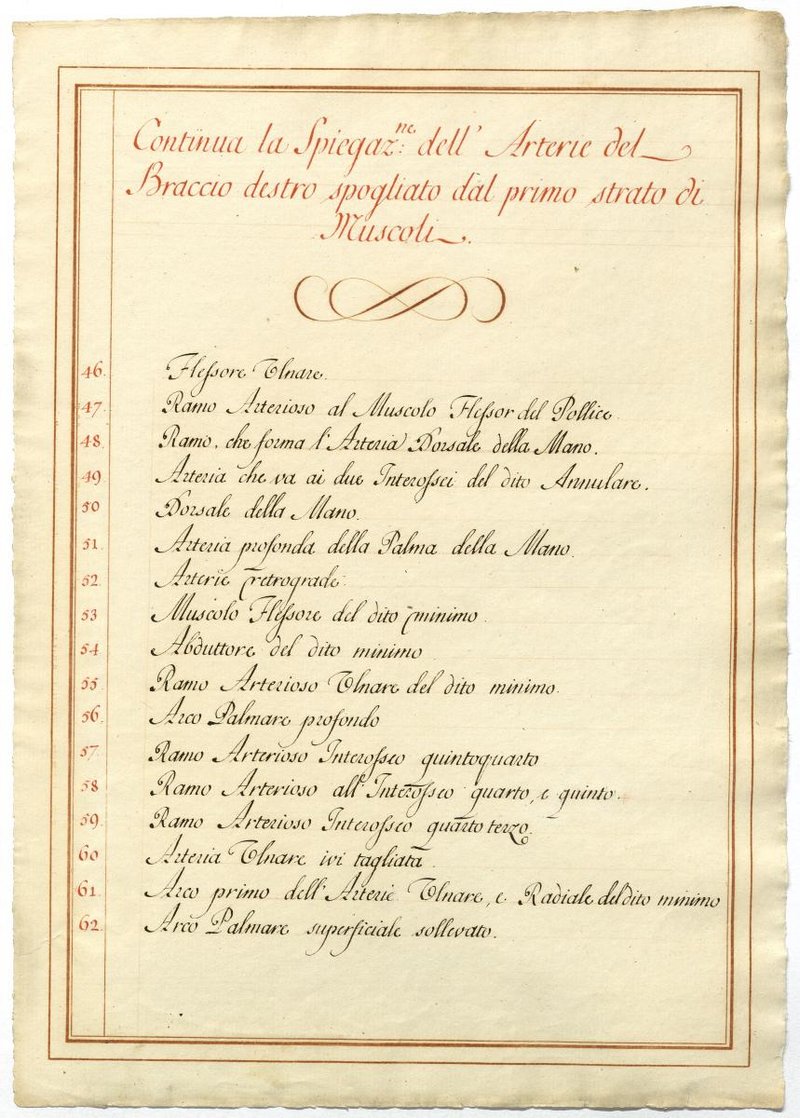 Continua la Spiegaz:ne dell' Arterie del
Braccio destro spogliato dal primo strato di
Muscoli.
46. Flessore Ulnare.
47. Ramo Arterioso al Muscolo Flessor del Pollice.
48. Ramo, che forma l'Arteria Dorsale della Mano.
49 Arteria che va ai due Interossei del dito Annulare.
50 Dorsale della Mano.
51. Arteria profonda della Palma della Mano.
52. Arterie retrograde.
53 Muscolo Flessore del dito minimo.
54 Abduttore del dito minimo
55. Ramo Arterioso Ulnare del dito minimo.
56. Arco Palmare profondo
57. Ramo Arterioso Interosseo quintoquarto
58 Ramo Arterioso all'Interosseo quarto, e quinto.
59. Ramo Arterioso Interosseo quarto terzo.
60 Arteria Ulnare ivi tagliata.
61. Arco primo dell'Arterie Ulnare, e Radiale del dito minimo
62. Arco Palmare superficiale sollevato.